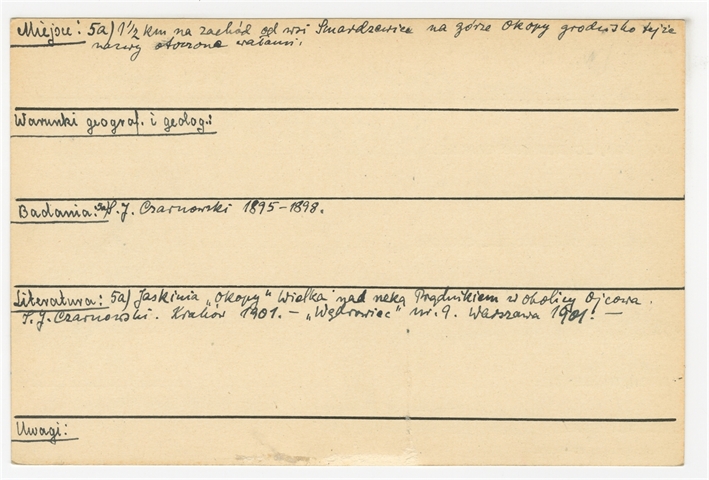 Miejsce: 5a) 1 1/2 km na zachód od wsi Smardzewice na górze Okopy grodzisko tejże
nazwy otoczone wałami.
Warunki geograf. i geolog.:
Badania: 5a) S. J. Czarnowski 1895-1898.
Literatura: 5a) Jaskinia „Okopy" Wielka nad rzeką Prądnikiem w okolicy Ojcowa.
S. J. Czarnowski. Kraków 1901. – „Wędrowiec" nr. 9. Warszawa 1901. –
Uwagi: